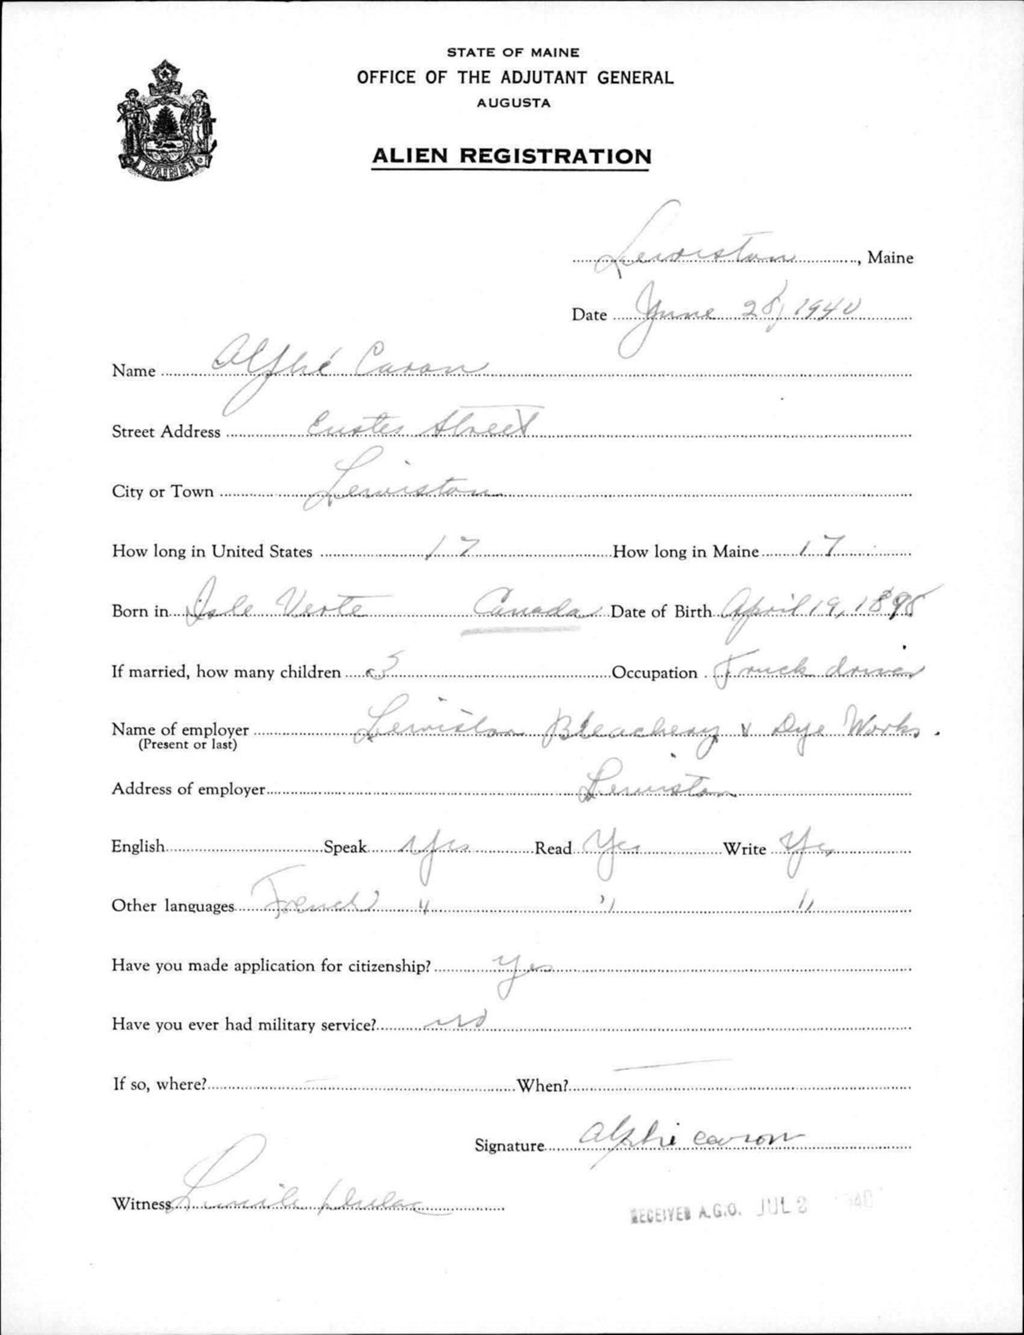 STATE OF MAINE
OFFICE OF THE ADJUTANT GENERAL
AUGUSTA
ALIEN REGISTRATION
MAINE
Lewiston, Maine
Date June 28, 1940
Name Alphé Caron
Street Address Eustes Street
City or Town Lewiston
How long in United States 17 How long in Maine 17
Born in Isle Verte Canada Date of Birth April 19, 1898
If married, how many children 3 Occupation Truck driver
Name of employer Lewiston Bleachery & Dye Works.
(Present or last)
Address of employer Lewiston
English Speak Yes Read Yes Write Yes
Other languages French " " "
Have you made application for citizenship? Yes
Have you ever had military service? no
If so, where? — When? —
Signature Alphé Caron
Witness Lucile
RECEIVED A.G.O. JUL 2 1940